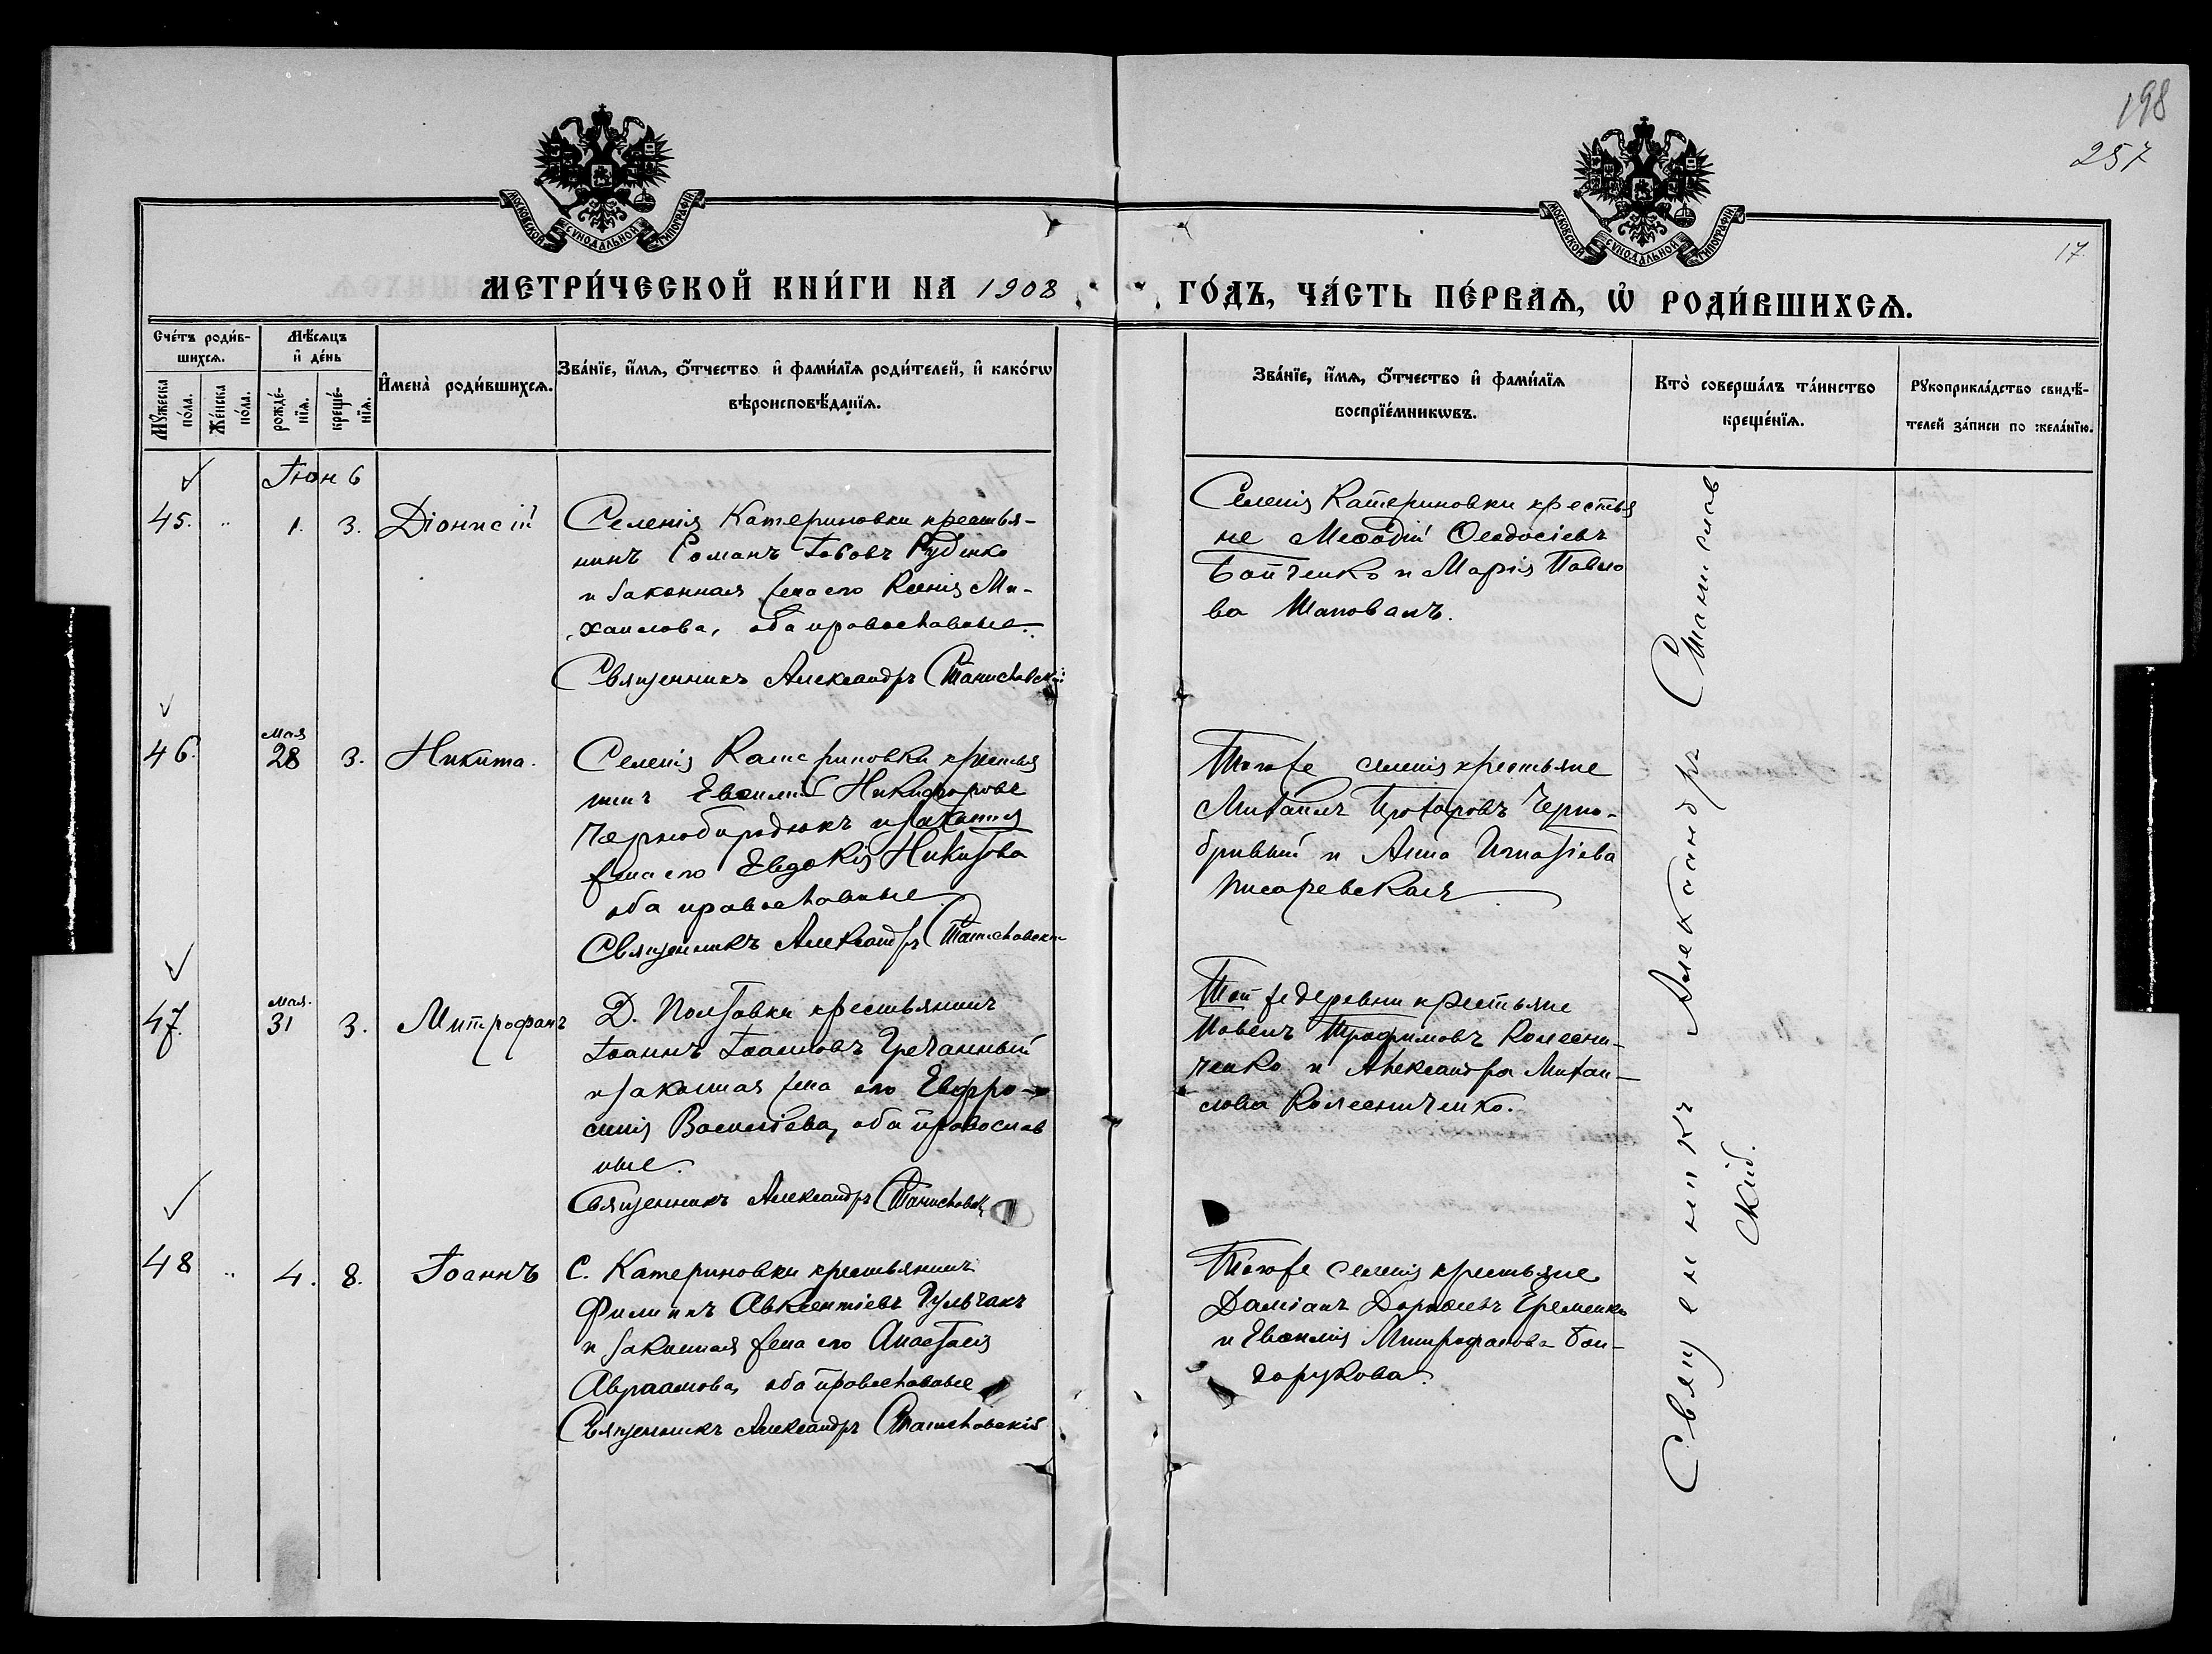 198
257
17.
МОСКОВСКОЙ СѴНОДАЛЬНОЙ ТИПОГРАФІИ
МОСКОВСКОЙ СѴНОДАЛЬНОЙ ТИПОГРАФІИ
МЕТРИ́ЧЕСКОЙ КНИ́ГИ НА 1908
ГО́ДЪ, ЧА́СТЬ ПЕ́РВАѦ, Ѡ҆ РОДИ́ВШИХСѦ.
Сче́тъ роди́в-
шихсѧ.
Мꙋ́жеска по́ла.
Же́нска по́ла.
Мѣ́сѧцъ
и҆ де́нь
рожде́-нїѧ.
креще́-нїѧ.
И҆мена̀ роди́вшихсѧ.
Зва́нїе, и҆́мѧ, ѻ҆́тчество и҆ фами́лїѧ роди́телей, и҆ како́гѡ
вѣроисповѣ́данїѧ.
Зва́нїе, и҆́мѧ, ѻ҆́тчество и҆ фами́лїѧ
воспрїе́мникѡвъ.
Кто̀ соверша́лъ та́инство
креще́нїѧ.
Рꙋкоприкла́дство свидѣ́-
телей за́писи по жела́нїю.
Іюнь
45. " 1. 3. Діонисій
Селенія Катериновки крестья-
нинъ Романъ Іововъ Руденко
и законная жена его Ксенія Ми-
хаилова, оба православные.
Священникъ Александръ Станиславскій
Селенія Катериновки крестья
не Меѳодій Ѳеодосіевъ
Бойченко и Марія Павло
ва Шаповалъ.
46. мая 28 3. Никита.
Селенія Катериновки крестья
нинъ Евѳимій Никифоровъ
Чернобородюкъ и законная
жена его Евдокія Никитова
оба православные
Священникъ Александръ Станиславскій
Тогоже селенія крестьяне
Михаилъ Прохоровъ Черно-
бривый и Анна Игнатіева
Писаревская
47. мая. 31 3. Митрофанъ
Д. Полтавки крестьянинъ
Іоаннъ Іоанновъ Гречанный
и законная жена его Евфро-
синія Васильева, оба православ
ные.
Священникъ Александръ Станиславск
Той же деревни крестьяне
Павелъ Трофимовъ Колесни-
ченко и Александра Михаи-
лова Колесниченко.
48 " 4. 8. Іоаннъ
С. Катериновки крестьянинъ
Филиппъ Авксентіевъ Гульчакъ
и законная жена его Анастасія
Авраамова, оба православные
Священникъ Александръ Станиславскій
Тогоже селенія крестьяне
Даміанъ Еременко
и Евѳимія Митрофанова Бон-
дарукова.
Священникъ Александръ Станислав
скій.